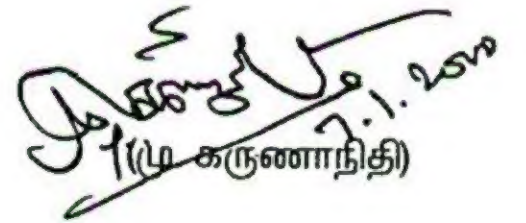 7.1.2000
(மு கருணாநிதி)